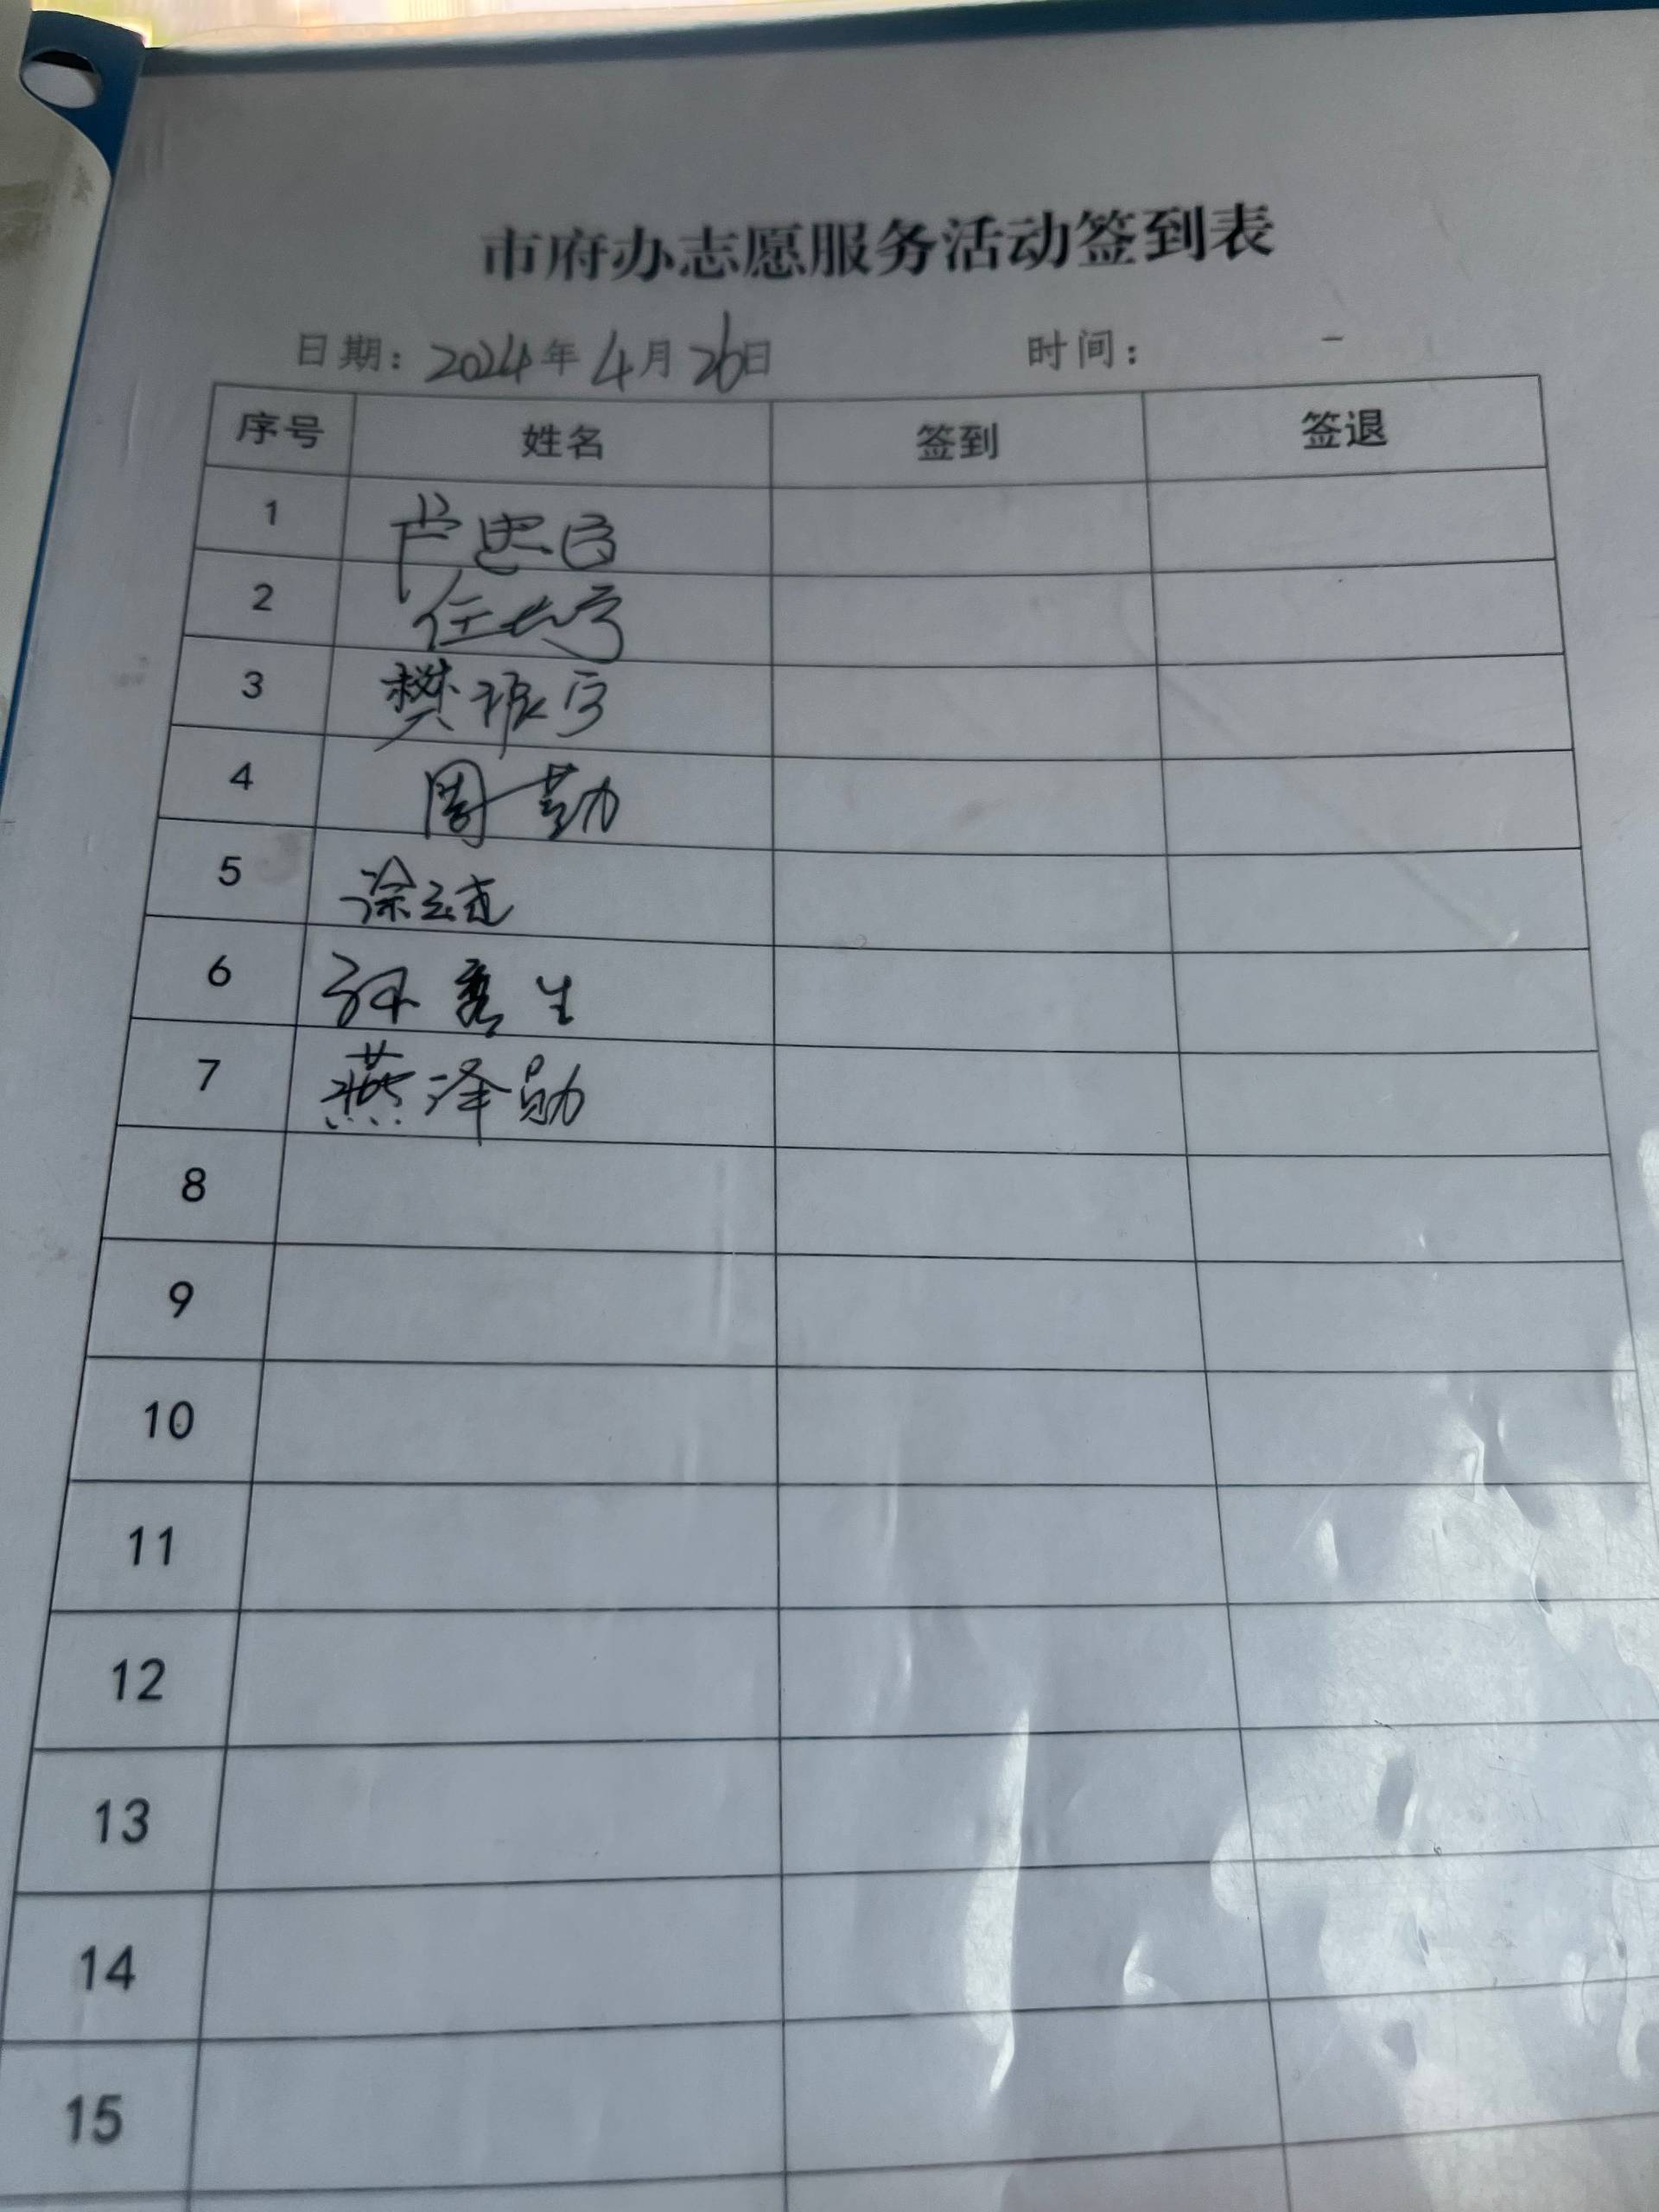 市府办志愿服务活动签到表
日期：2024年4月26日 时间： -
序号 姓名 签到 签退
1
2 任
3 樊振宇
4 周勤
5 涂
6 孙秀生
7 燕泽勋
8
9
10
11
12
13
14
15